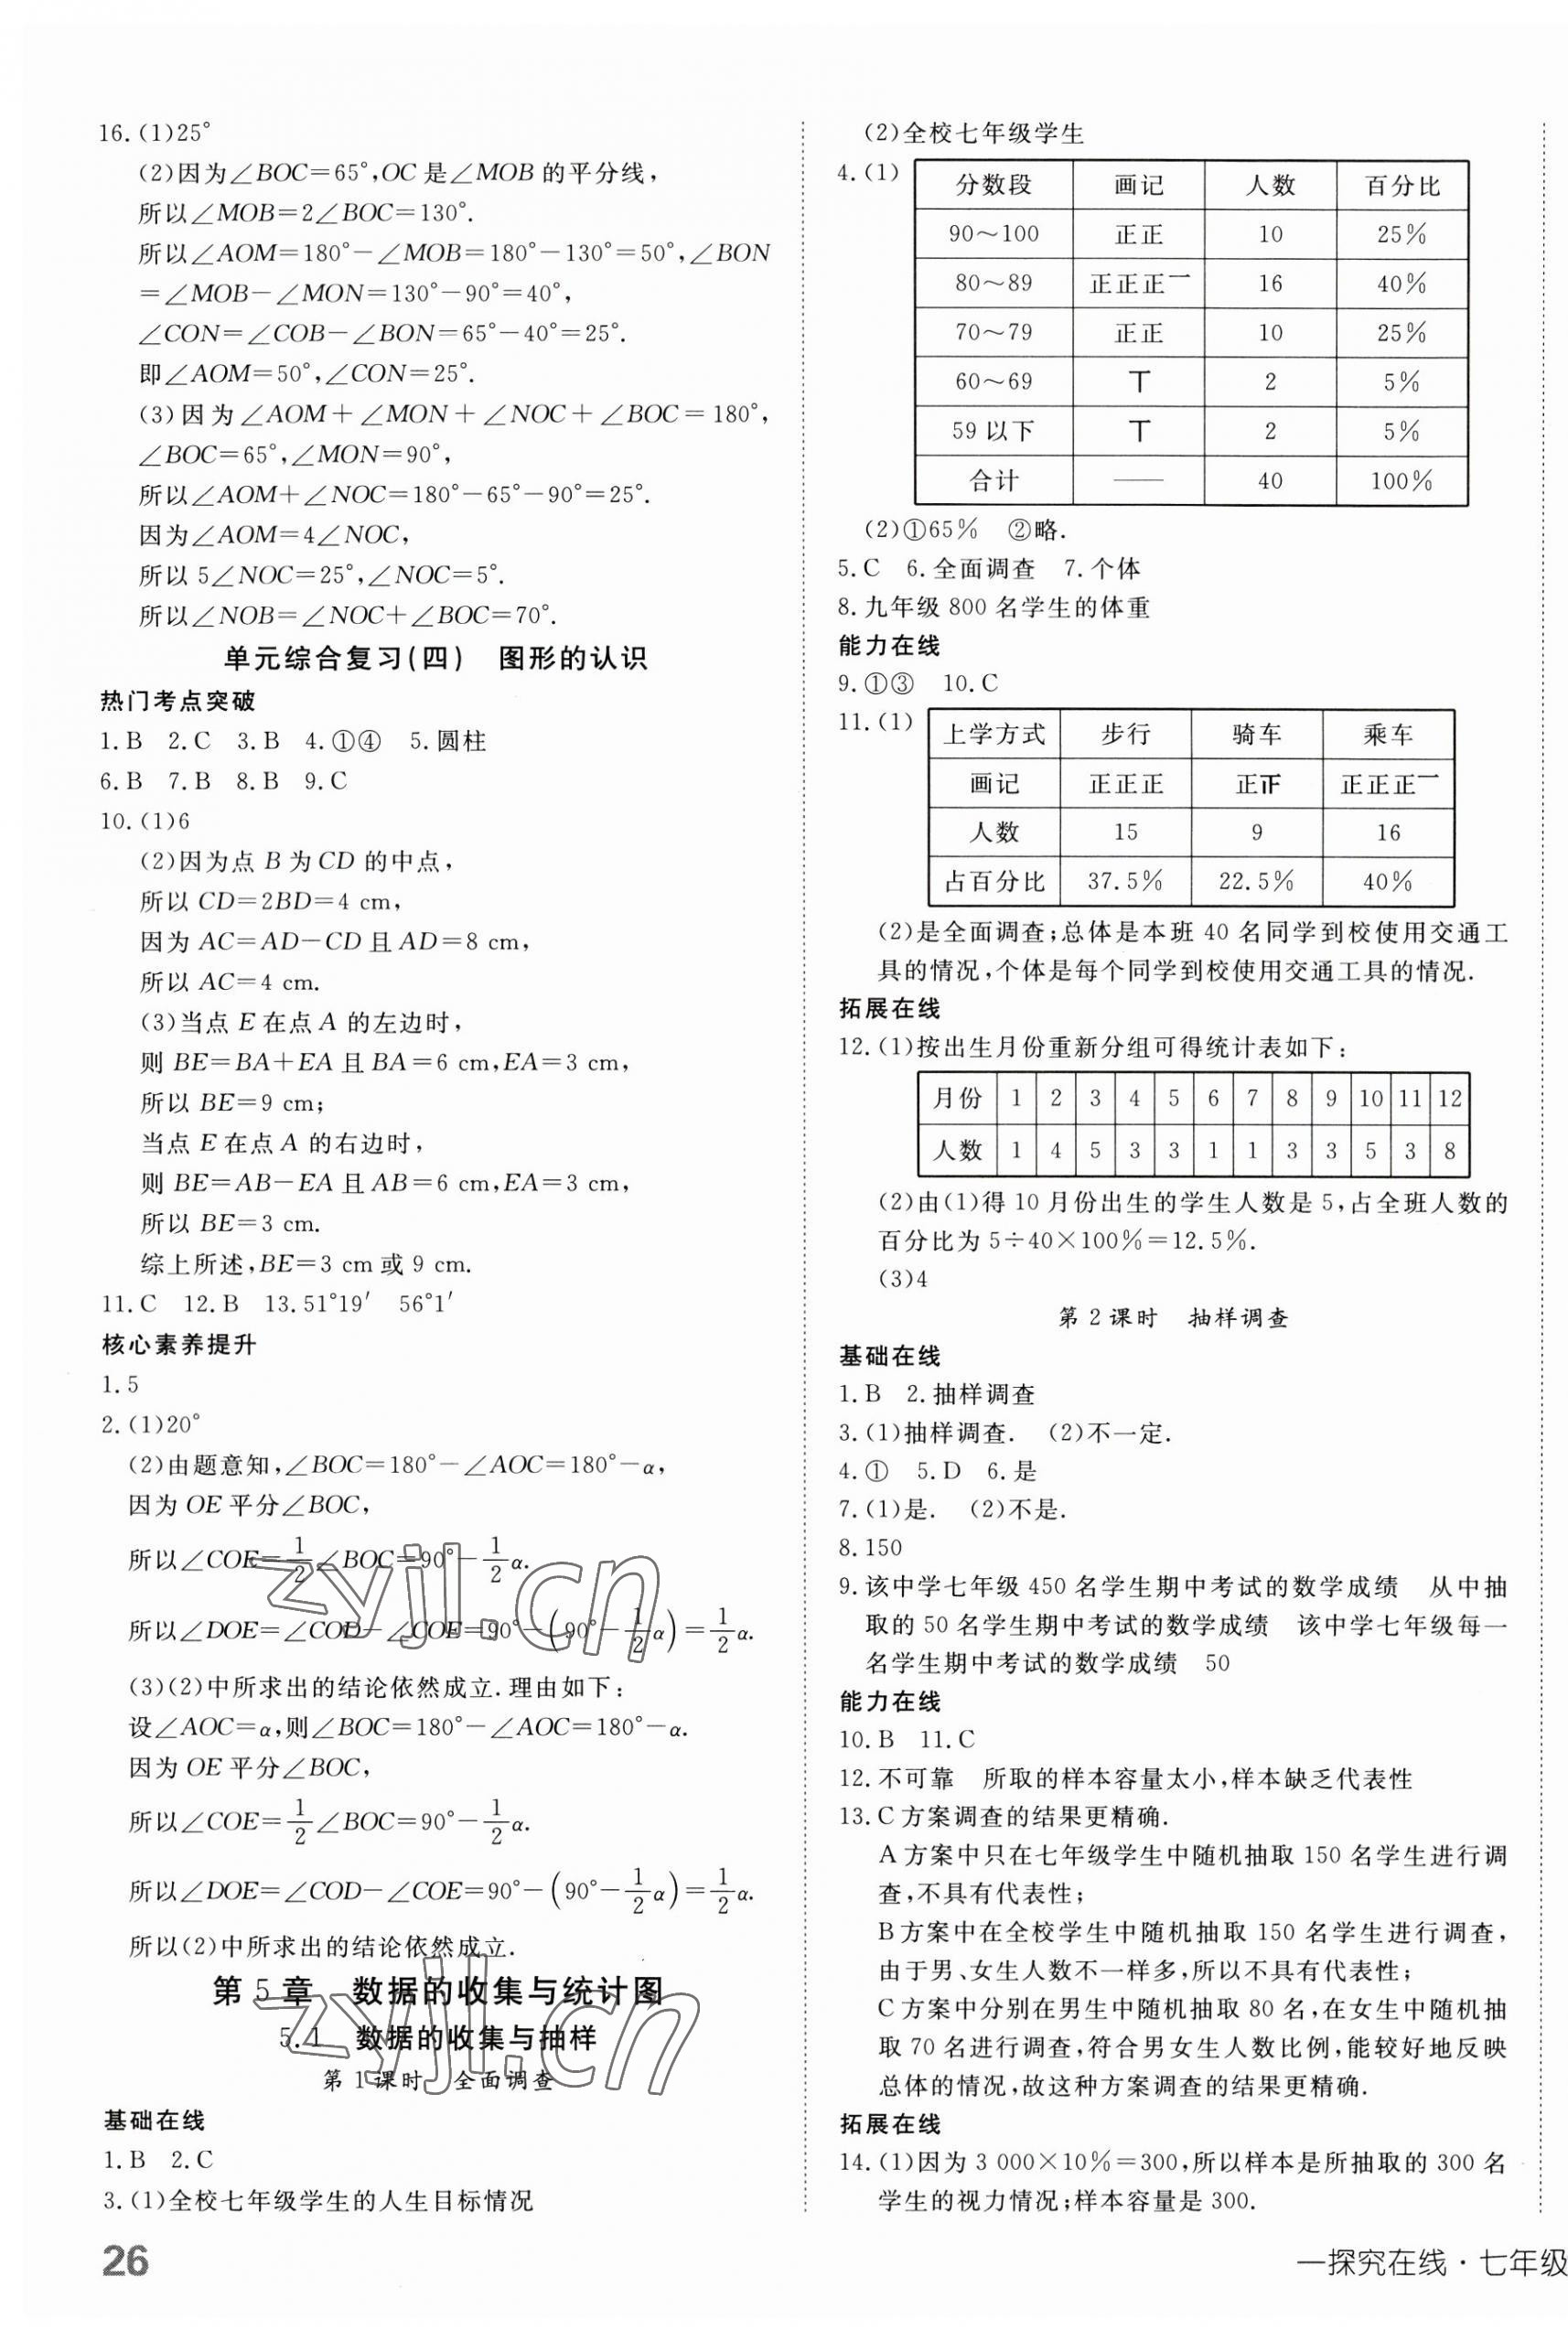 16.(1)25°
(2)因为∠BOC=65°,OC是∠MOB的平分线,
所以∠MOB=2∠BOC=130°.
所以∠AOM=180°-∠MOB=180°-130°=50°,∠BON
=∠MOB-∠MON=130°-90°=40°,
∠CON=∠COB-∠BON=65°-40°=25°.
即∠AOM=50°,∠CON=25°.
(3)因为∠AOM+∠MON+∠NOC+∠BOC=180°,
∠BOC=65°,∠MON=90°,
所以∠AOM+∠NOC=180°-65°-90°=25°.
因为∠AOM=4∠NOC,
所以5∠NOC=25°,∠NOC=5°.
所以∠NOB=∠NOC+∠BOC=70°.
单元综合复习(四) 图形的认识
热门考点突破
1.B 2.C 3.B 4.①④ 5.圆柱
6.B 7.B 8.B 9.C
10.(1)6
(2)因为点B为CD的中点,
所以CD=2BD=4 cm,
因为AC=AD-CD且AD=8 cm,
所以AC=4 cm.
(3)当点E在点A的左边时,
则BE=BA+EA且BA=6 cm,EA=3 cm,
所以BE=9 cm;
当点E在点A的右边时,
则BE=AB-EA且AB=6 cm,EA=3 cm,
所以BE=3 cm.
综上所述,BE=3 cm或9 cm.
11.C 12.B 13.51°19′ 56°1′
核心素养提升
1.5
2.(1)20°
(2)由题意知,∠BOC=180°-∠AOC=180°-α,
因为OE平分∠BOC,
所以∠COE=1/2∠BOC=90°-1/2α.
所以∠DOE=∠COD-∠COE=90°-(90°-1/2α)=1/2α.
(3)(2)中所求出的结论依然成立.理由如下:
设∠AOC=α,则∠BOC=180°-∠AOC=180°-α.
因为OE平分∠BOC,
所以∠COE=1/2∠BOC=90°-1/2α.
所以∠DOE=∠COD-∠COE=90°-(90°-1/2α)=1/2α.
所以(2)中所求出的结论依然成立.
第5章 数据的收集与统计图
5.1 数据的收集与抽样
第1课时 全面调查
基础在线
1.B 2.C
3.(1)全校七年级学生的人生目标情况
(2)全校七年级学生
4.(1)
分数段 画记 人数 百分比
90～100 正正 10 25%
80～89 正正正一 16 40%
70～79 正正 10 25%
60～69 丅 2 5%
59以下 丅 2 5%
合计 —— 40 100%
(2)①65% ②略.
5.C 6.全面调查 7.个体
8.九年级800名学生的体重
能力在线
9.①③ 10.C
11.(1)
上学方式 步行 骑车 乘车
画记 正正正 正𝍵 正正正一
人数 15 9 16
占百分比 37.5% 22.5% 40%
(2)是全面调查;总体是本班40名同学到校使用交通工
具的情况,个体是每个同学到校使用交通工具的情况.
拓展在线
12.(1)按出生月份重新分组可得统计表如下:
月份 1 2 3 4 5 6 7 8 9 10 11 12
人数 1 4 5 3 3 1 1 3 3 5 3 8
(2)由(1)得10月份出生的学生人数是5,占全班人数的
百分比为5÷40×100%=12.5%.
(3)4
第2课时 抽样调查
基础在线
1.B 2.抽样调查
3.(1)抽样调查. (2)不一定.
4.① 5.D 6.是
7.(1)是. (2)不是.
8.150
9.该中学七年级450名学生期中考试的数学成绩 从中抽
取的50名学生期中考试的数学成绩 该中学七年级每一
名学生期中考试的数学成绩 50
能力在线
10.B 11.C
12.不可靠 所取的样本容量太小,样本缺乏代表性
13.C方案调查的结果更精确.
A方案中只在七年级学生中随机抽取150名学生进行调
查,不具有代表性;
B方案中在全校学生中随机抽取150名学生进行调查,
由于男、女生人数不一样多,所以不具有代表性;
C方案中分别在男生中随机抽取80名,在女生中随机抽
取70名进行调查,符合男女生人数比例,能较好地反映
总体的情况,故这种方案调查的结果更精确.
拓展在线
14.(1)因为3 000×10%=300,所以样本是所抽取的300名
学生的视力情况;样本容量是300.
26
一探究在线·七年级
zyjl.cn
zyjl.cn